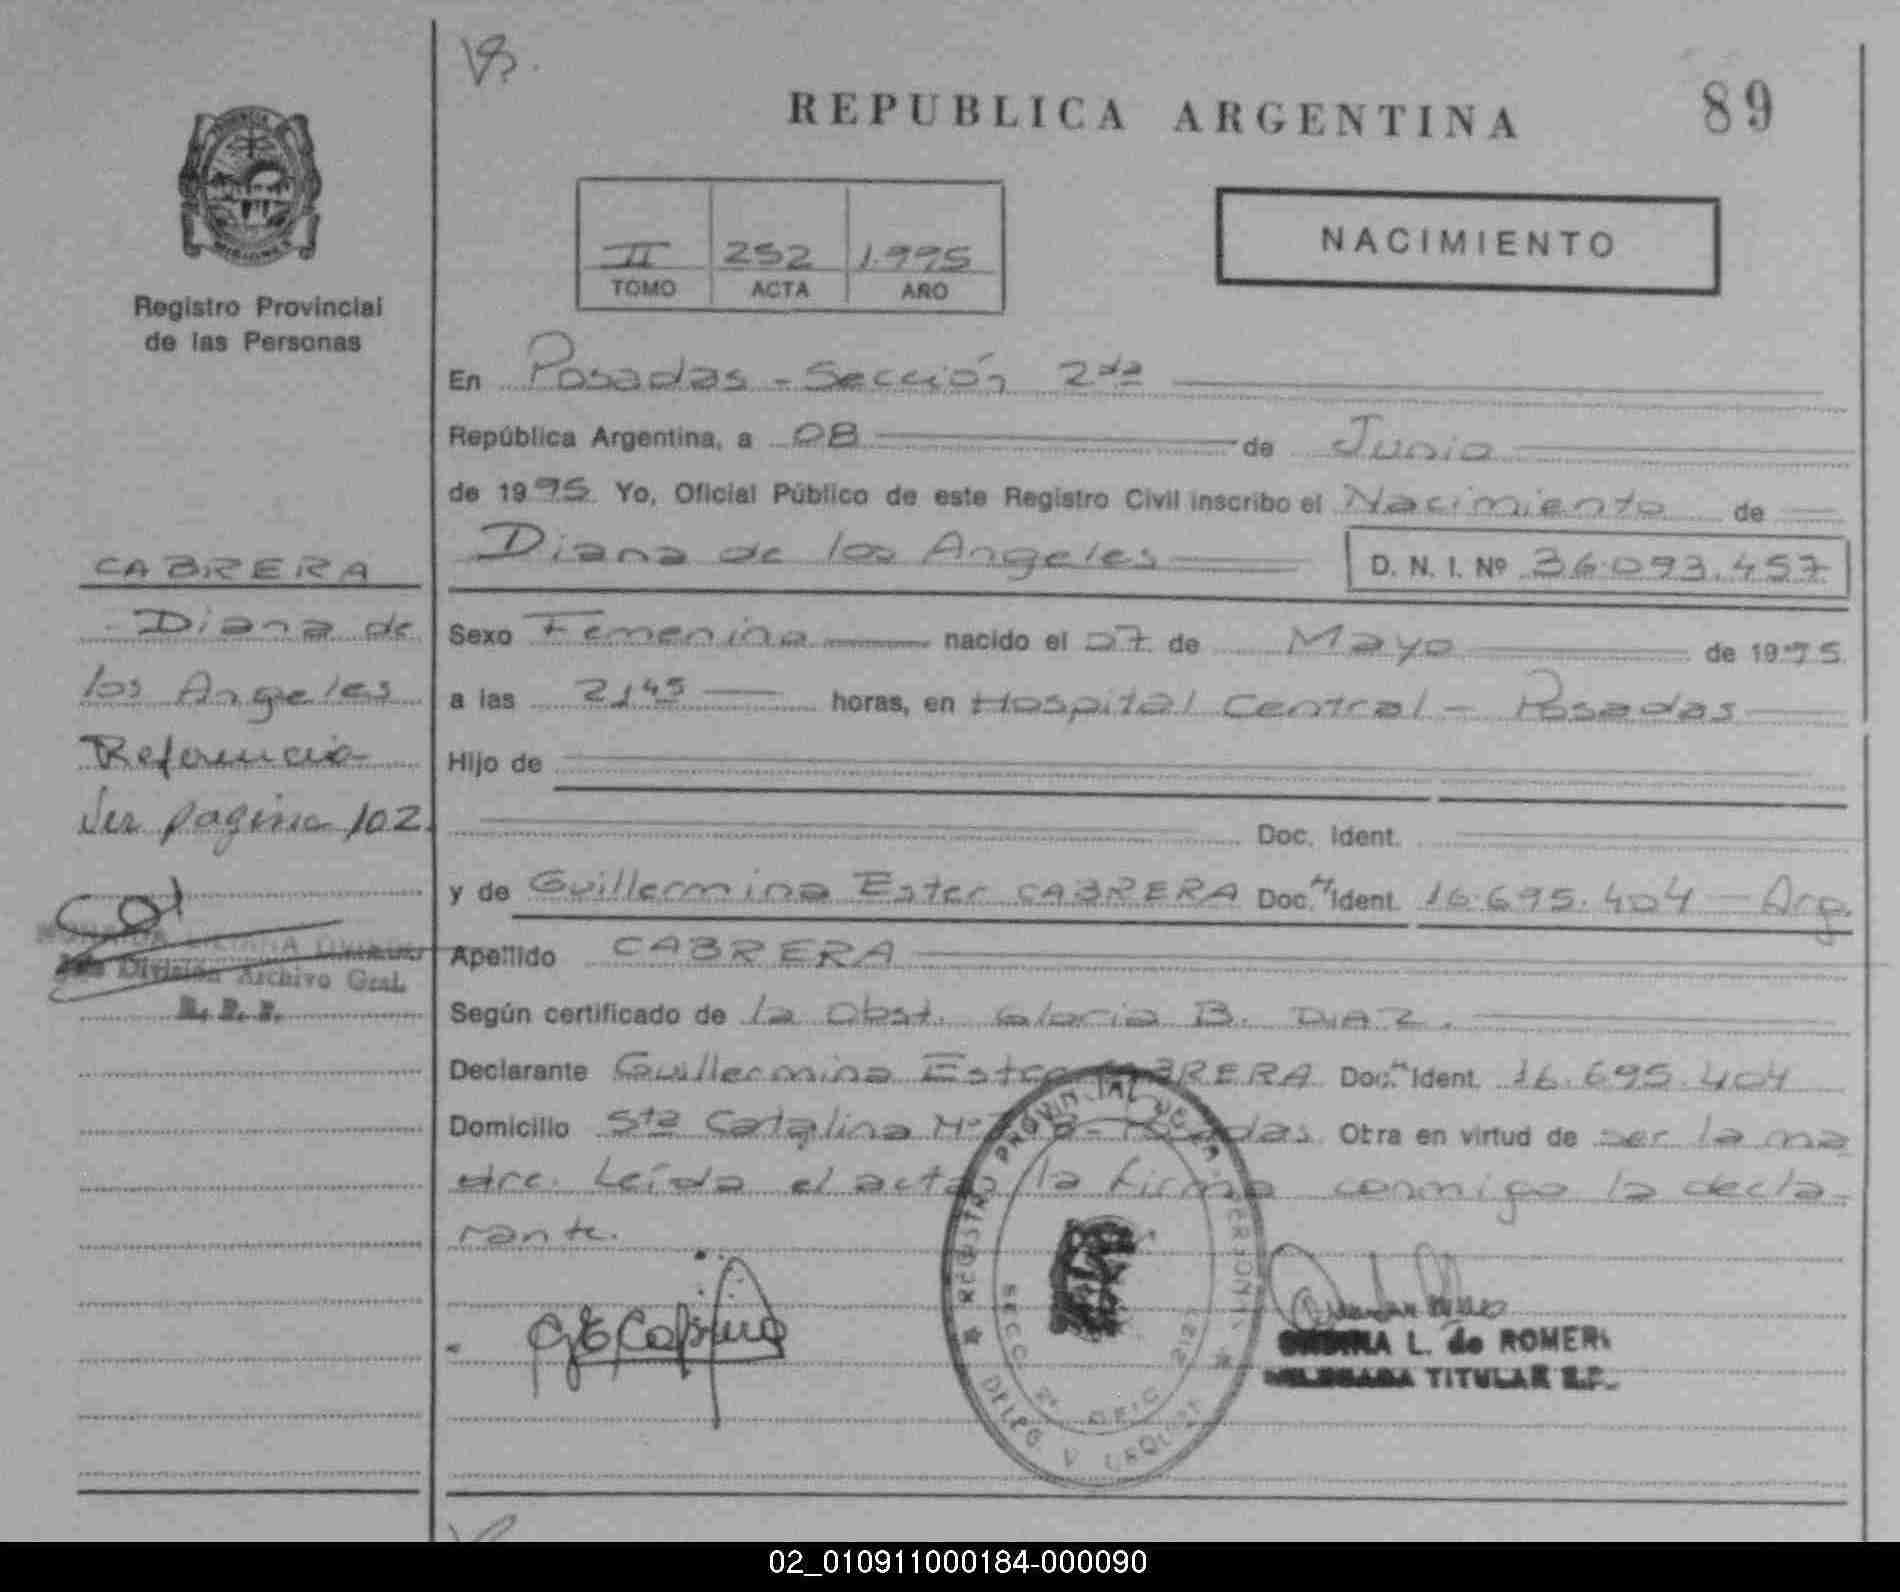 REPUBLICA ARGENTINA
89
Registro Provincial
de las Personas
II 252 1.995
TOMO ACTA AÑO
NACIMIENTO
En Posadas - Sección 2da
República Argentina, a 08 de Junio
de 1995 Yo, Oficial Público de este Registro Civil inscribo el Nacimiento de
Diana de los Angeles D. N. I. Nº 36.093.457
Sexo Femenino nacido el 07 de Mayo de 1995
a las 21,45 horas, en Hospital Central - Posadas
Hijo de
Doc. Ident.
y de Guillermina Ester CABRERA Doc. Ident. 16.695.404 - Arg.
Apellido CABRERA
Según certificado de la Obst. Gloria B. DIAZ.
Declarante Guillermina Ester CABRERA Doc. Ident. 16.695.404
Domicilio Sta Catalina Posadas Otra en virtud de ser la ma
dre. Leída el acta, la firma conmigo la decla-
rante.
CABRERA
- Diana de
los Angeles
Referencia
Ver pagina 102
División Archivo Gral.
R. P. P.
L. de ROMERO
DELEGADA TITULAR R.P.
02_010911000184-000090